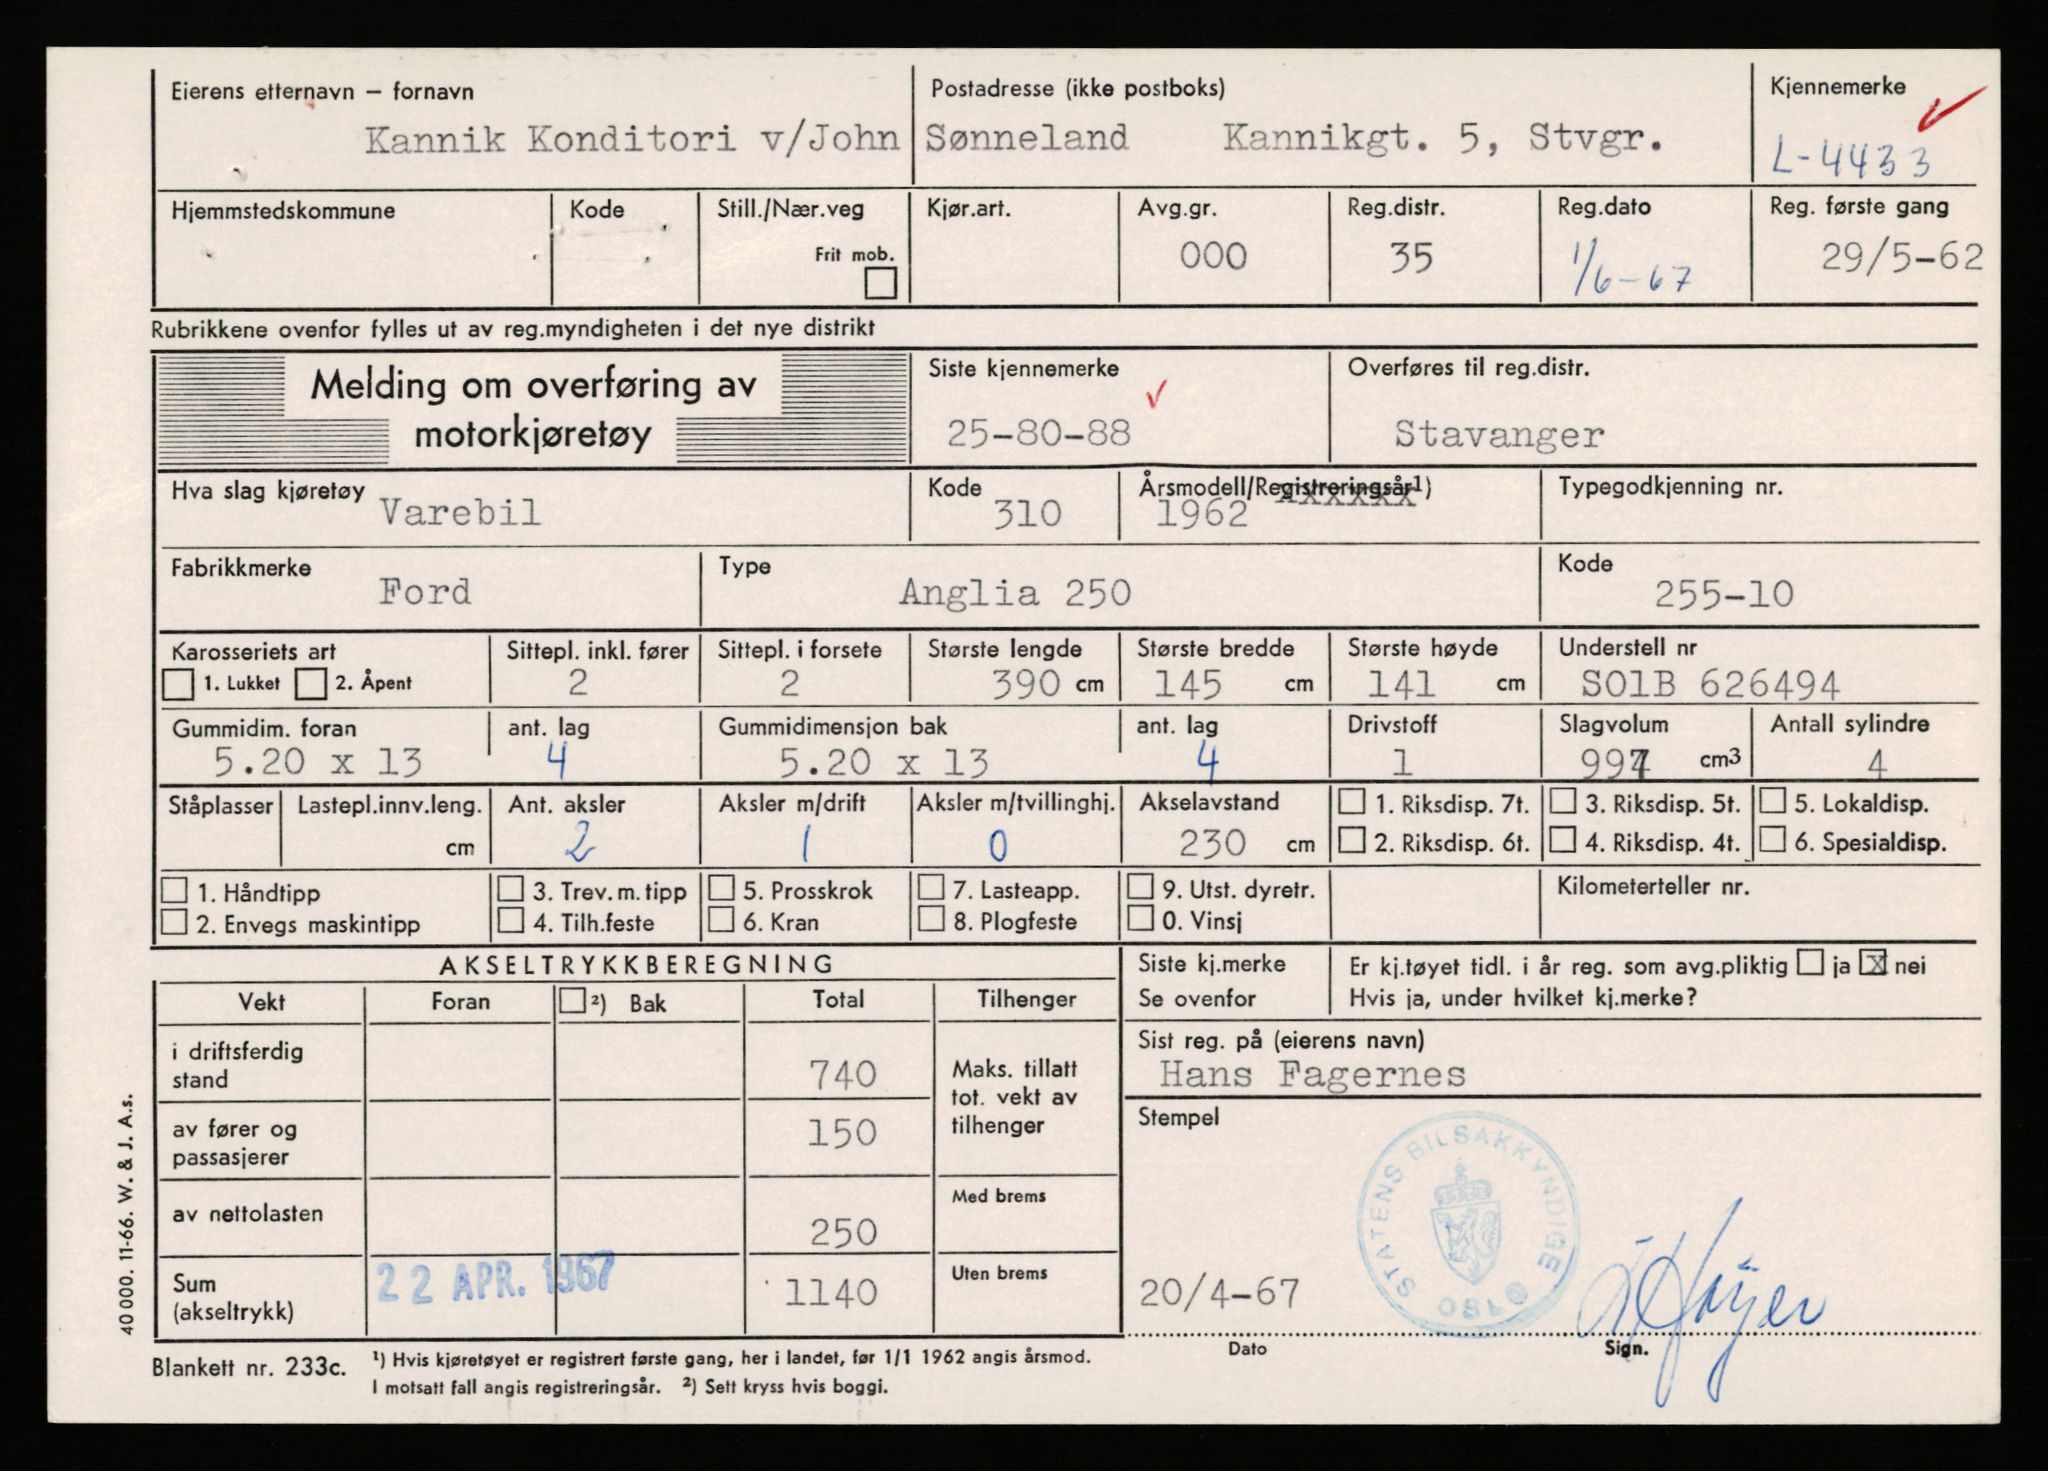 Eierens etternavn – fornavn
Kannik Konditori v/John Sønneland
Postadresse (ikke postboks)
Kannikgt. 5, Stvgr.
Kjennemerke
L-4433
Hjemmstedskommune
Kode
Still./Nær.veg
Frit mob.
Kjør.art.
Avg.gr.
000
Reg.distr.
35
Reg.dato
1/6-67
Reg. første gang
29/5-62
Rubrikkene ovenfor fylles ut av reg.myndigheten i det nye distrikt
Melding om overføring av
motorkjøretøy
Siste kjennemerke
25-80-88
Overføres til reg.distr.
Stavanger
Hva slag kjøretøy
Varebil
Kode
310
Årsmodell/Registreringsår¹)
1962 xxxxxx
Typegodkjenning nr.
Fabrikkmerke
Ford
Type
Anglia 250
Kode
255-10
Karosseriets art
1. Lukket 2. Åpent
Sittepl. inkl. fører
2
Sittepl. i forsete
2
Største lengde
390 cm
Største bredde
145 cm
Største høyde
141 cm
Understell nr
SO1B 626494
Gummidim. foran
5.20 x 13
ant. lag
4
Gummidimensjon bak
5.20 x 13
ant. lag
4
Drivstoff
1
Slagvolum
cm3
Antall sylindre
4
Ståplasser
Lastepl.innv.leng.
cm
Ant. aksler
2
Aksler m/drift
1
Aksler m/tvillinghj.
0
Akselavstand
230 cm
1. Riksdisp. 7t.
2. Riksdisp. 6t.
3. Riksdisp. 5t.
4. Riksdisp. 4t.
5. Lokaldisp.
6. Spesialdisp.
1. Håndtipp
2. Envegs maskintipp
3. Trev. m. tipp
4. Tilh.feste
5. Prosskrok
6. Kran
7. Lasteapp.
8. Plogfeste
9. Utst. dyretr.
0. Vinsj
Kilometerteller nr.
AKSELTRYKKBEREGNING
Vekt
Foran
²) Bak
Total
Tilhenger
i driftsferdig
stand
740
av fører og
passasjerer
150
av nettolasten
250
Sum
(akseltrykk)
22 APR. 1967
1140
Maks. tillatt
tot. vekt av
tilhenger
Med brems
Uten brems
Siste kj.merke
Se ovenfor
Er kj.tøyet tidl. i år reg. som avg.pliktig ja x nei
Hvis ja, under hvilket kj.merke?
Sist reg. på (eierens navn)
Hans Fagernes
Stempel
STATENS BILSAKKYNDIGE
OSLO
20/4-67
Dato
Sign.
40 000. 11-66. W. & J. A.s.
Blankett nr. 233c.
¹) Hvis kjøretøyet er registrert første gang, her i landet, før 1/1 1962 angis årsmod.
I motsatt fall angis registreringsår. ²) Sett kryss hvis boggi.